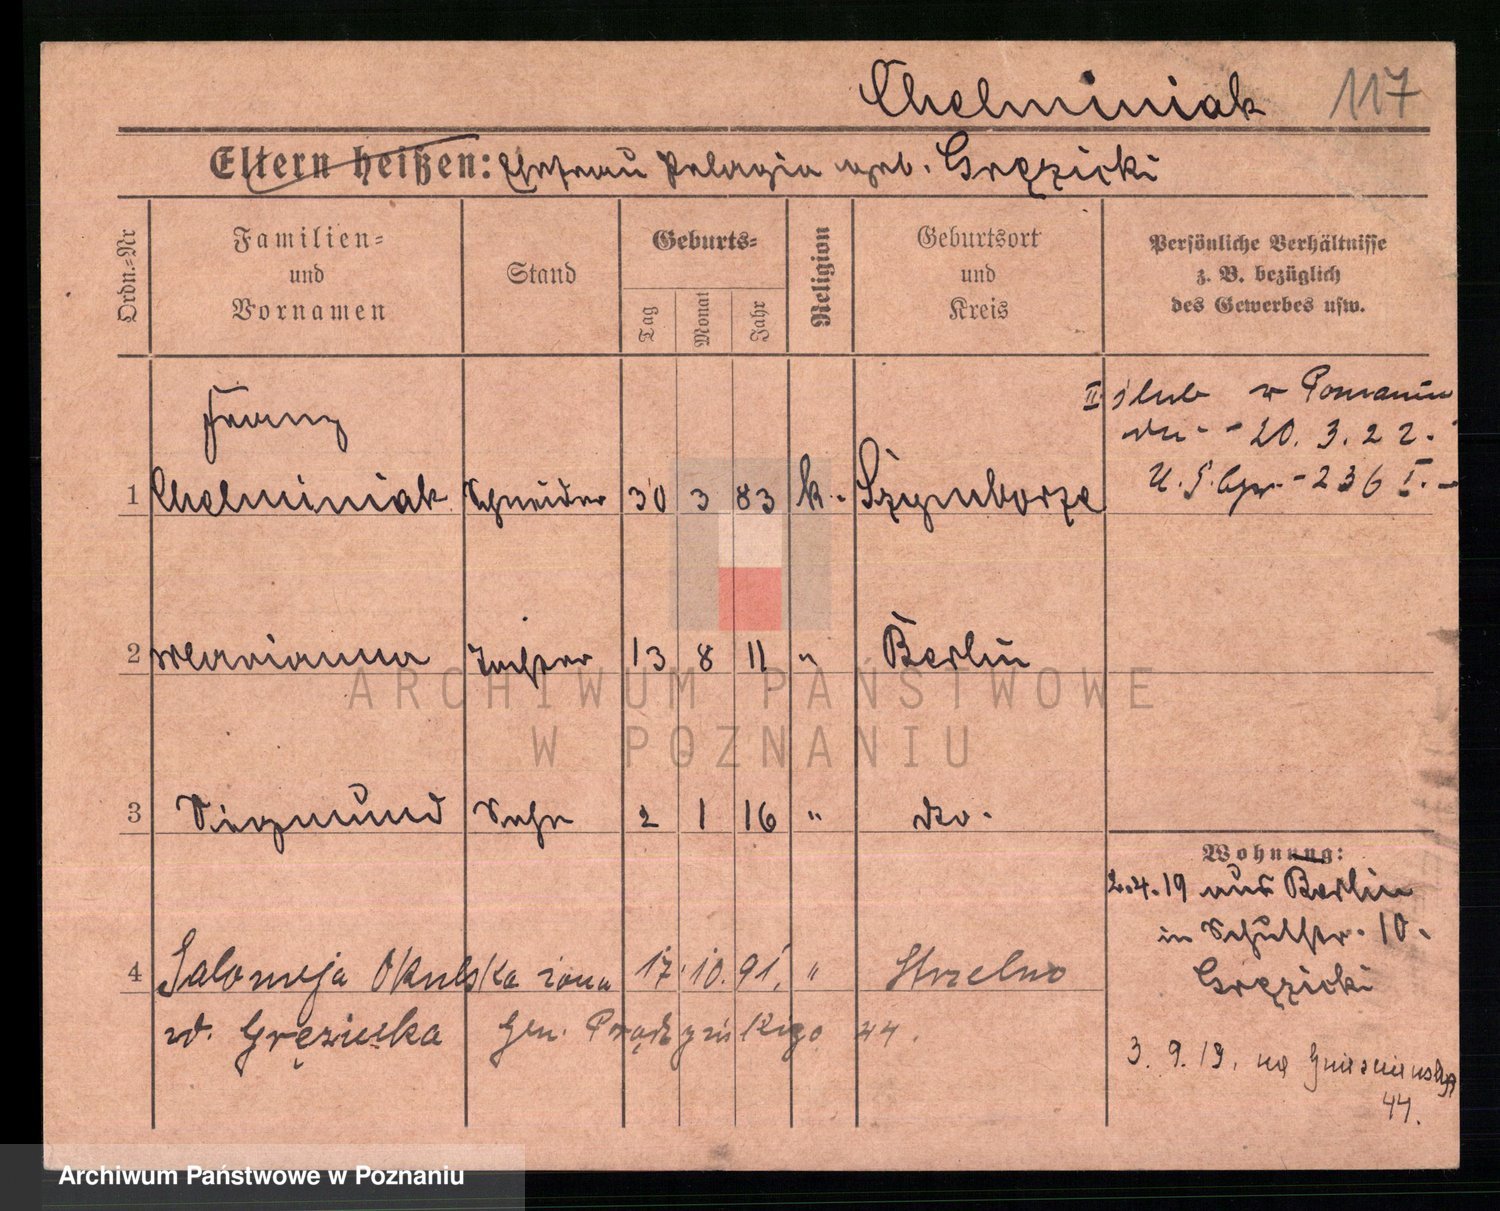 Chelminiak 117
Eltern heißen: Ehefrau Pelagia geb. Gręzicki
Ordn.=Nr
Familien=
und
Vornamen
Stand
Geburts=
Tag
Monat
Jahr
Religion
Geburtsort
und
Kreis
Persönliche Verhältnisse
z. B. bezüglich
des Gewerbes usw.
Franz
1 Chelminiak Schneider 30 3 83 k. Szymborze
II ślub w Poznaniu
dn. - 20. 3. 22.
U. S. - 236 I. -
2 Marianna Tochter 13 8 11 " Berlin
3 Siegmund Sohn 2 1 16 " do.
Wohnung:
2.4.19 aus Berlin
in Schulstr. 10.
Gręzicki
4 Salomeja Okulska żona 17. 10. 91. " Strzelno
zd. Gręzicka Gen. Prądzyńskiego 44.
3. 9. 19. na Gnieźnieńską
44.
ARCHIWUM PAŃSTWOWE
W POZNANIU
Archiwum Państwowe w Poznaniu